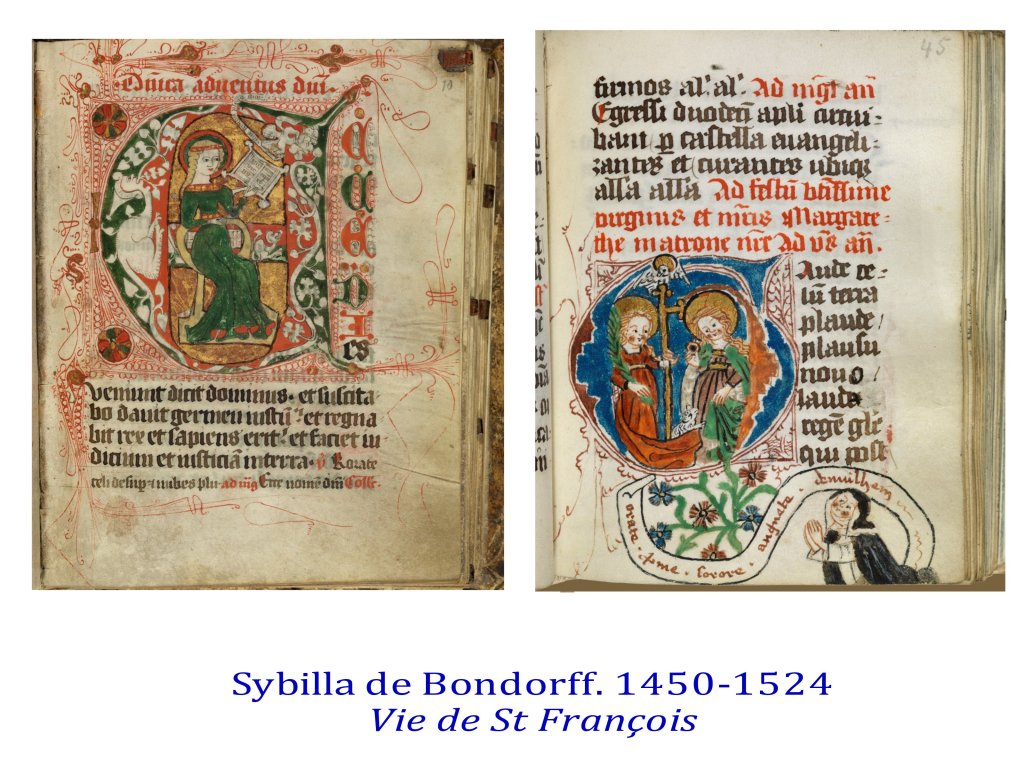 Dn̄ica aduentus dn̄i.
10
es
venīunt dicit dominus. et suscita-
bo dauit germen iustū. et regna
bit rex et sapiens erit. et faciet iu
dicium et iusticiā in terra. Rorate
celi desup et nubes plu. ad mg̅ Ecce nomē dn̄i
45
firmos al'. al'. Ad mg̅t an̄
Egressi duodeci apli circui-
bant p castella euangeli-
zantes et curantes ubiqȝ
alla alla Ad festū btissime
virginis et mr̄is Margare-
the matrone nr̄e Ad vs̄ an̄.
Aude ce-
lū terra
plaude /
plausu
nouo /
laude
regē glē
qui post
orate . p me . sorore . angnate . demulhem
Sybilla de Bondorff. 1450-1524
Vie de St François